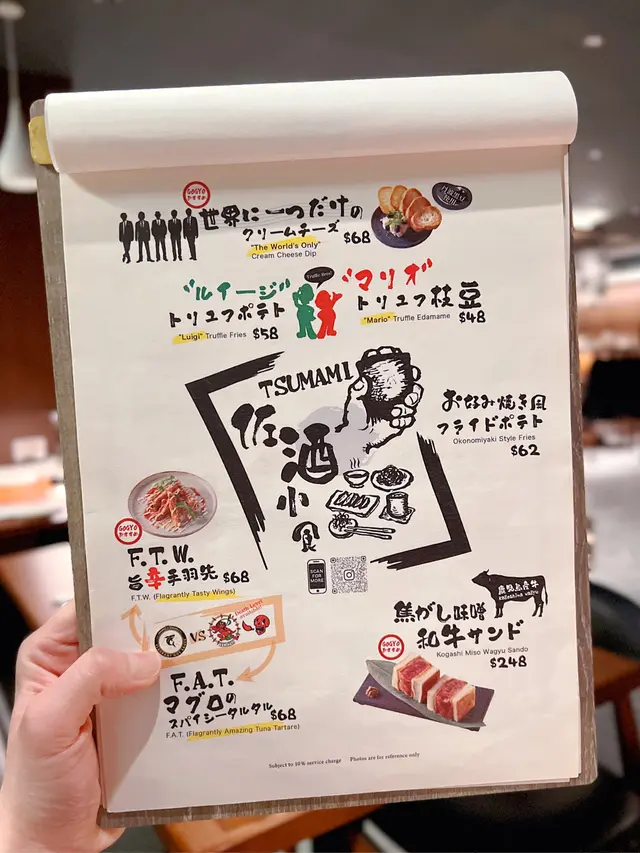 GOGYO
おすすめ
世界に一つだけの
クリームチーズ
"The World's Only" $68
Cream Cheese Dip
"ルイージ"
トリュフポテト
"Luigi" Truffle Fries $58
"マリオ"
トリュフ枝豆
"Mario" Truffle Edamame $48
TSUMAMI
佐酒小食
お好み焼き風
フライドポテト
Okonomiyaki Style Fries
$62
SCAN
FOR
MORE
GOGYO
F.T.W.
旨辛手羽先 $68
F.T.W. (Flagrantly Tasty Wings)
VS
F.A.T.
マグロの
スパイシータルタル $68
F.A.T. (Flagrantly Amazing Tuna Tartare)
鹿児島産牛
kagoshima wagyu
焦がし味噌
和牛サンド
GOGYO
おすすめ
Kogashi Miso Wagyu Sando
$248
Subject to 10% service charge Photos are for reference only